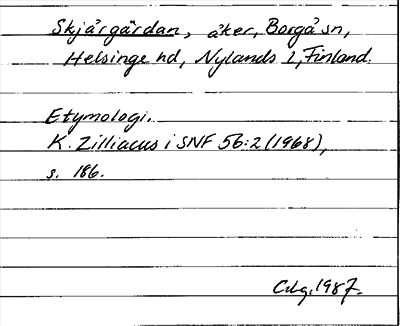 Skjärgärdan, åker, Borgå sn,
Helsinge hd, Nylands l, Finland.
Etymologi.
K. Zilliacus i SNF 56:2 (1968),
s. 186.
1987.